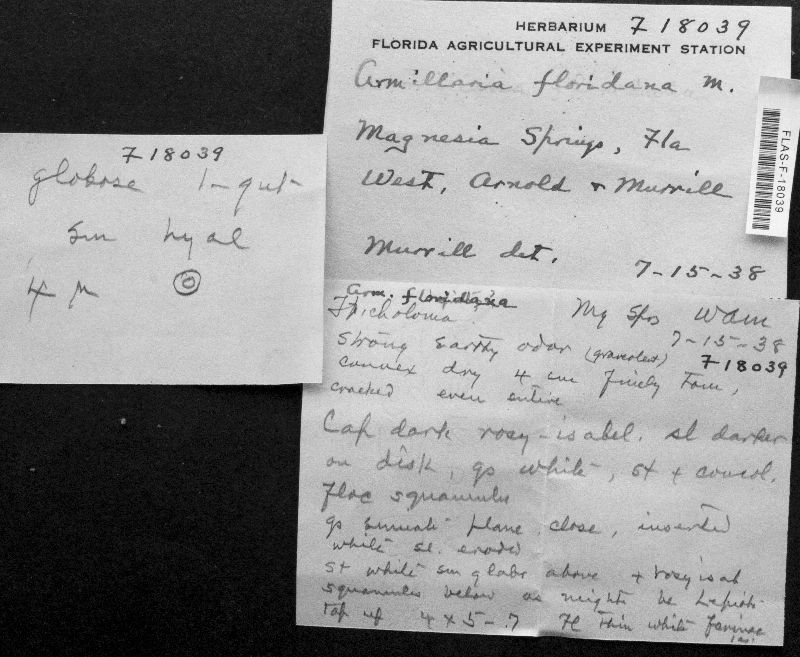 HERBARIUM F 18039
FLORIDA AGRICULTURAL EXPERIMENT STATION
Armillaria floridana M.
Magnesia Springs, Fla
West, Arnold & Murrill
Murrill det. 7-15-38
FLAS-F-18039
F 18039
globose 1-gut
sm hyal
4 µ
Arm. floridana
Tricholoma. Mg Spgs WAM
7-15-38
strong earthy odor (graveolent) F 18039
convex dry 4 cm finely tom,
cracked even entire
Cap dark rosy-isabel. sl darker
on disk, gs white, st + concol.
floc squamules
gs sinuate plane, close, inserted
white sl. eroded
st white sm glabr above + rosy isab
squamules below as might be Lepiota
tap up 4 x 5-.7 Fl thin white farinac